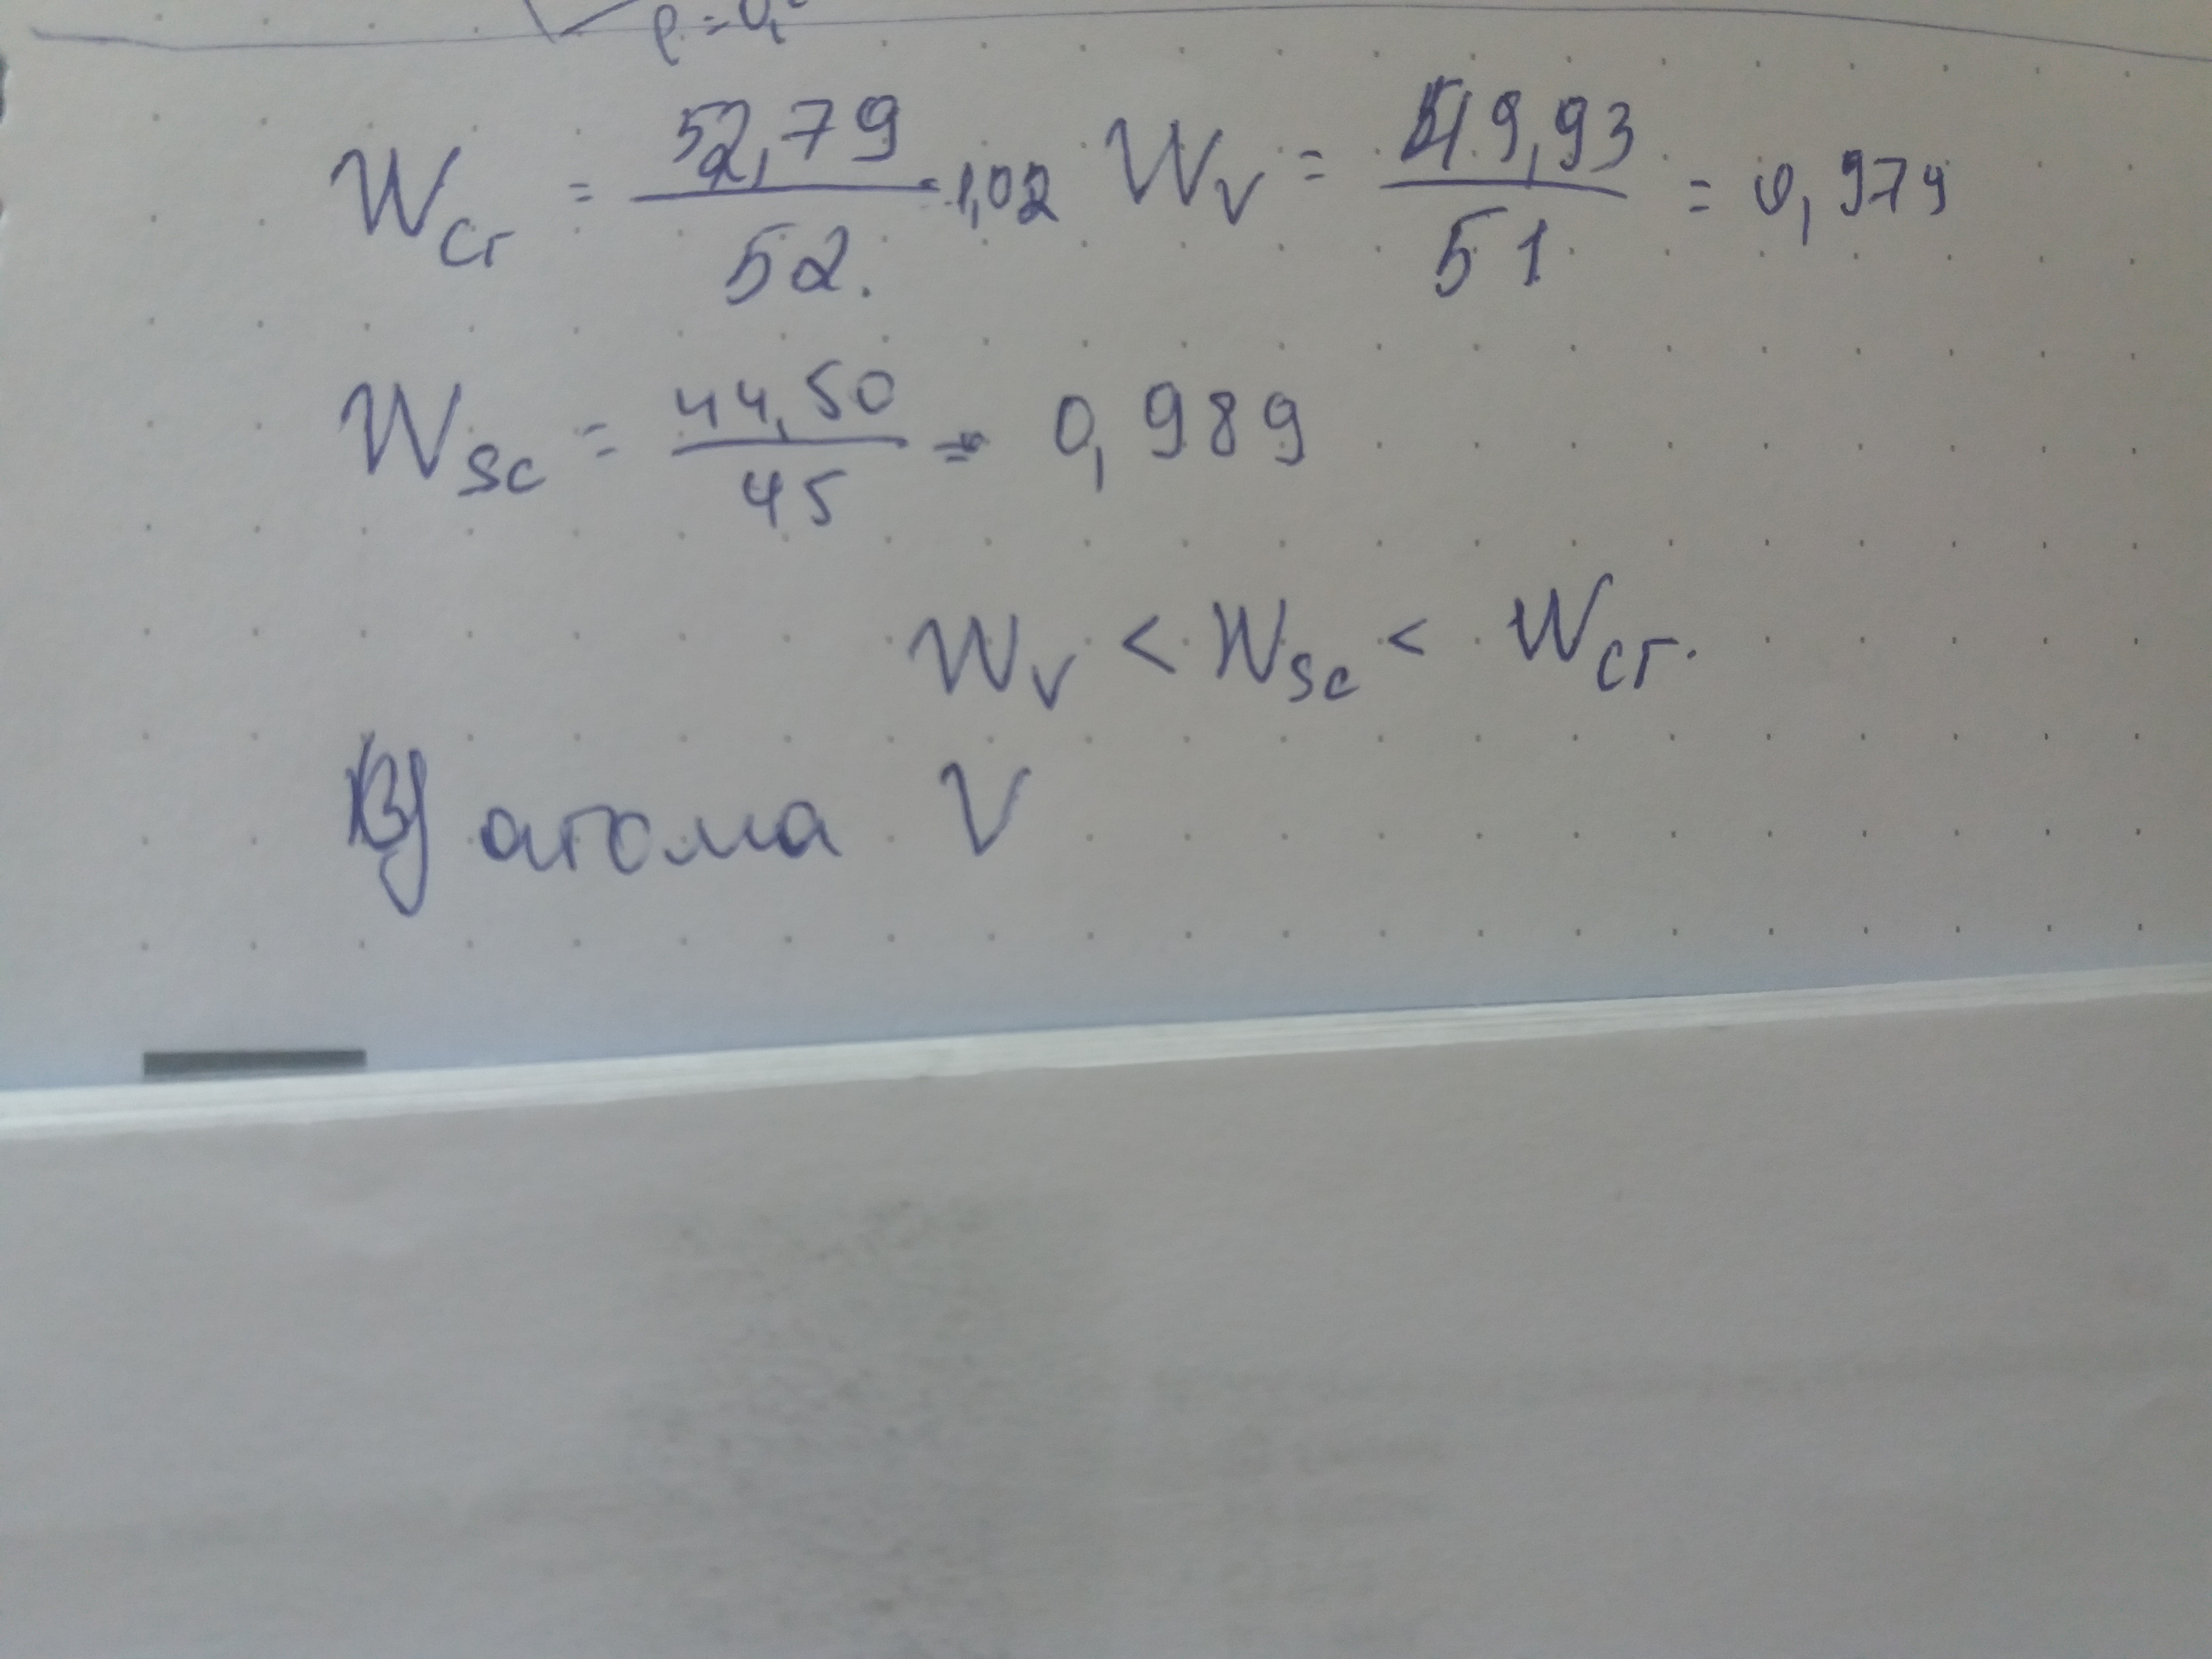 ρ = 0,
W_Cr = 52,79 / 52. = 1,02 W_V = 49,93 / 51 = 0,979
W_Sc = 44,50 / 45 = 0,989
W_V < W_Sc < W_Cr.
У атома V